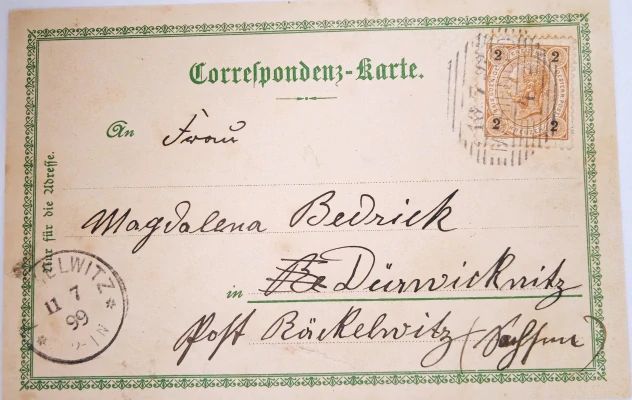 Correspondenz-Karte.
2 2
2 2
An Frau
Magdalena Bedrick
in Dürrwicknitz
Post Räckelwitz (Sachsen)
Nur für die Adresse.
ELWITZ
11 7
99